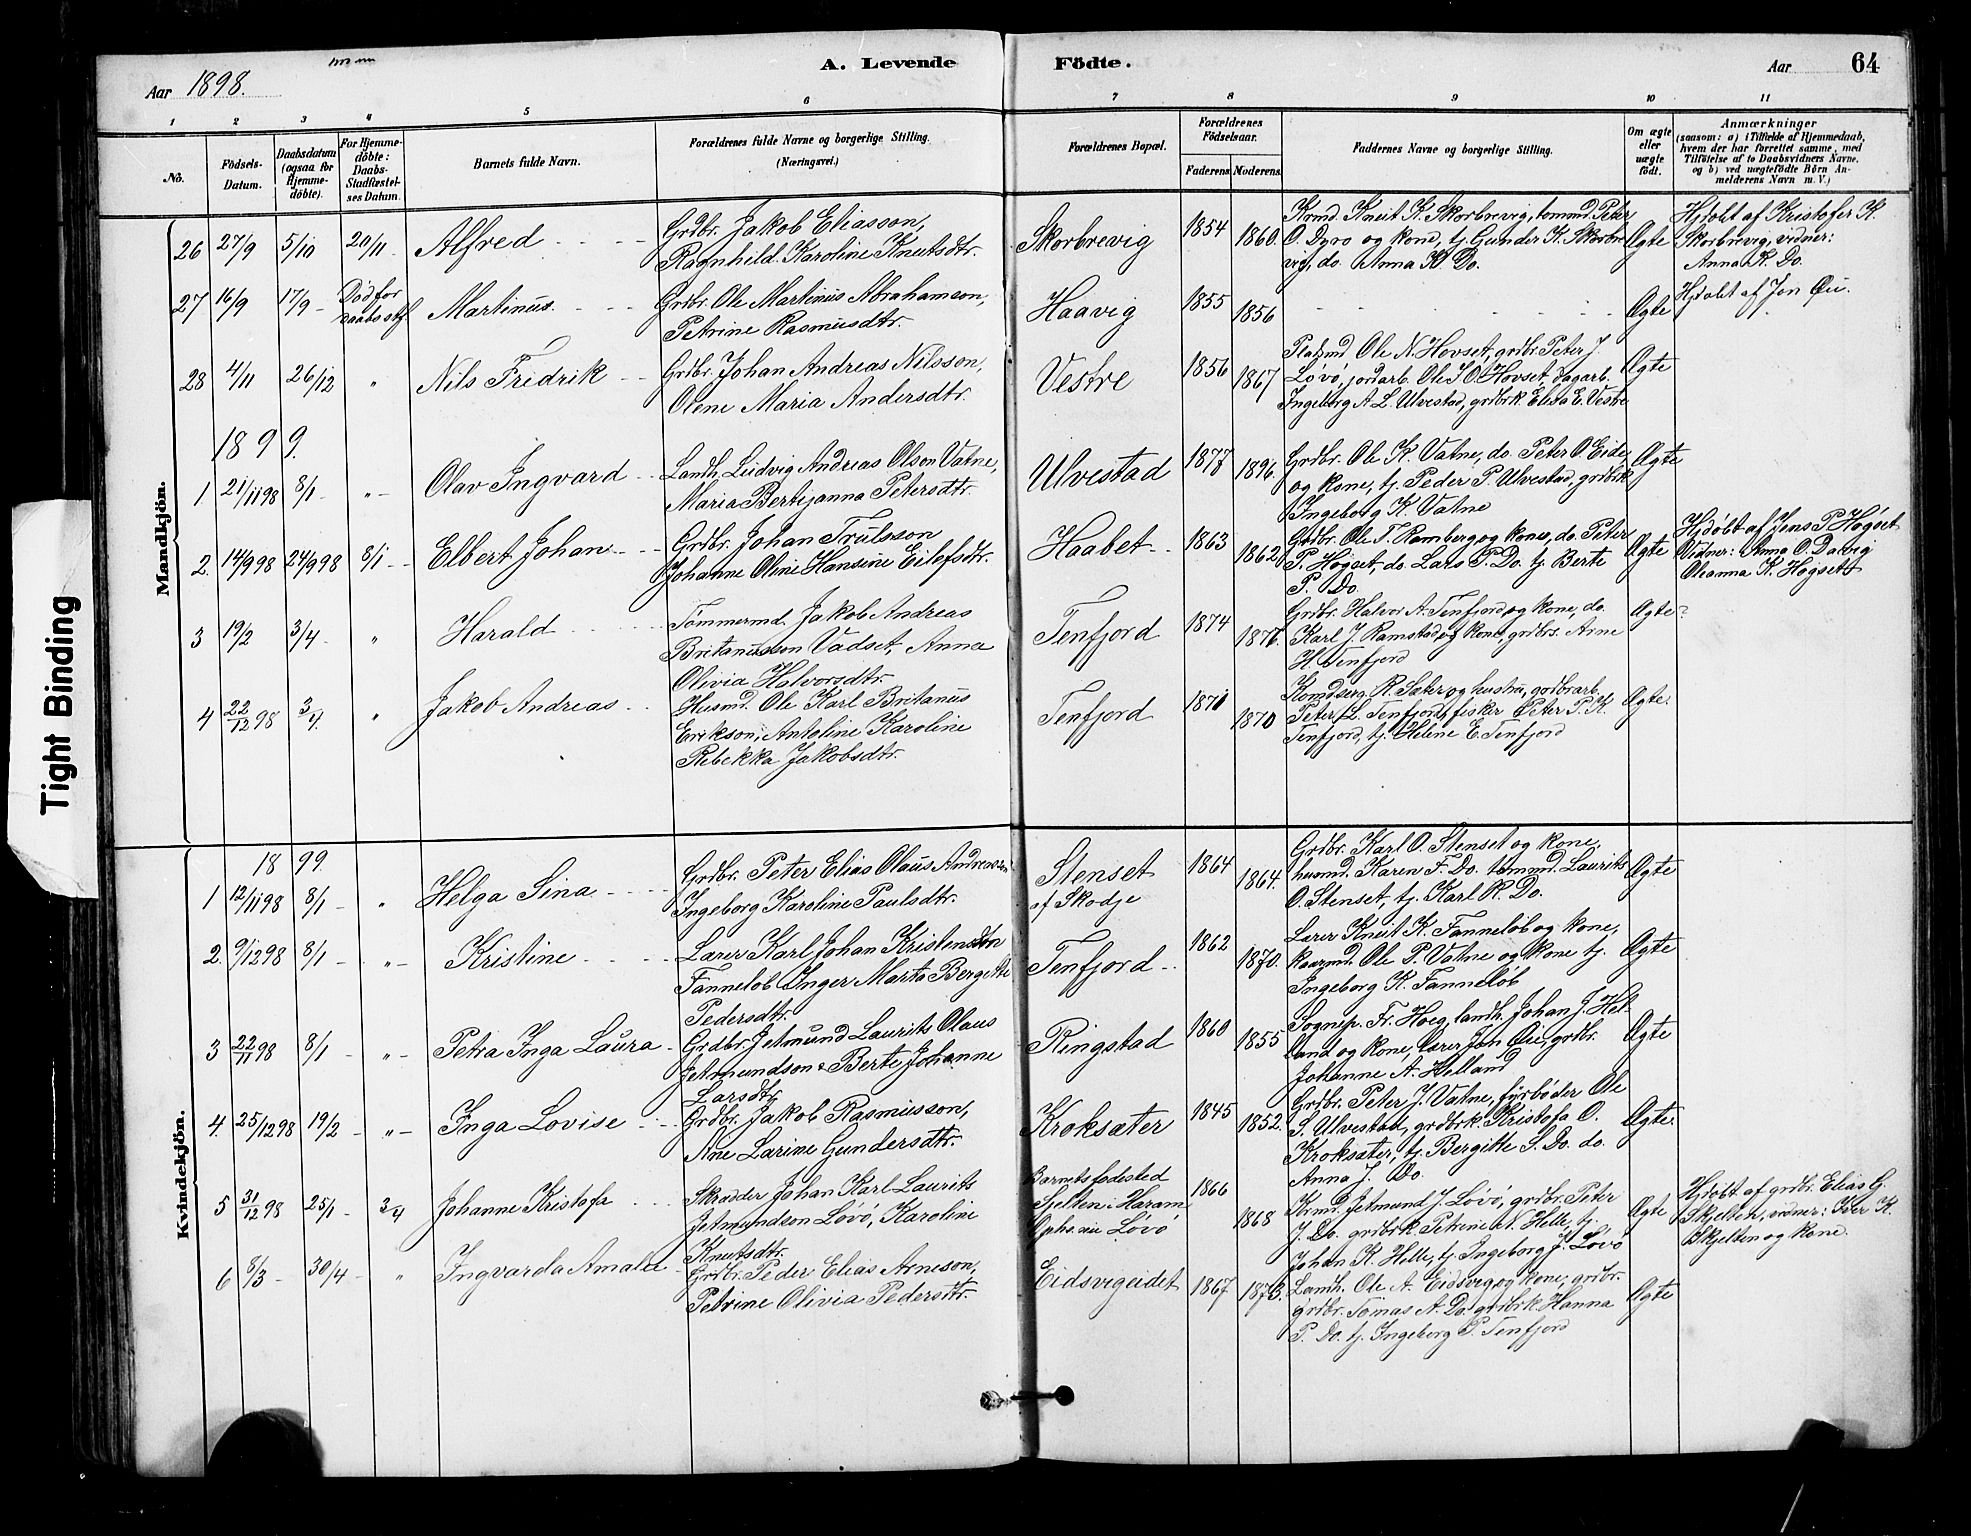 Aar 1898.
A. Levende Födte.
Aar 64
1 2 3 4 5 6 7 8 9 10 11
No.
Födsels-Datum.
Daabsdatum (ogsaa for Hjemme-döbte).
For Hjemme-döbte: Daabs-Stadfæstel-ses Datum.
Barnets fulde Navn.
Forældrenes fulde Navne og borgerlige Stilling. (Næringsvei.)
Forældrenes Bopæl.
Forældrenes Födselsaar.
Faderens Moderens.
Faddernes Navne og borgerlige Stilling.
Om ægte eller uægte födt.
Anmærkninger
(saasom: a) i Tilfælde af Hjemmedaab, hvem der har forrettet samme, med Tilföielse af to Daabsvidners Navne, og b) ved uægtefödte Börn An-melderens Navn m. V.)
Tight Binding
Mandkjön.
26 27/9 5/10 20/11 Alfred
Grdbr. Jakob Eliasson,
Ragnhild Karoline Knutsdtr.
Skorbrevig 1854 1860.
Krmd. Knut K. Skorbrevig, tommd. Peter
O. Dyro og kone, tj. Gunder K. Skorbre
vig, do. Anna K. Do.
Ægte
Hjdöbt af Kristofer K.
Skorbrevig, vidner:
Anna R. Do.
27 16/9 17/9 - Död for daabsstf Martinus.
Grdbr. Ole Martinus Abrahamson,
Petrine Rasmusdtr.
Haavig 1855 1856
Ægte
Hjdöbt af Jon Øu.
28 4/11 26/12 " Nils Fredrik
Grdbr. Johan Andreas Nilsson,
Olene Maria Andersdtr.
Vestre 1856 1867
Pladsmd Ole N. Hovset, grdbr. Peter J.
Løvö, jordarb. Ole J. O. Hovset, dagarb.
Ingeborg A. L. Ulvestad, grdbrk. Elisa E. Vestre
Ægte
1899.
1 21/11 98 8/1 " - Olav Ingvard
Landh. Ludvig Andreas Olson Vatne,
Maria Bertejanna Petersdtr.
Ulvestad 1877 1896.
Grdbr. Ole K. Vatne, do. Peter O. Eide
og kone, tj. Peder P. Ulvestad, grdbrk
Ingeborg K. Vatne
Ægte
2. 14/9 98 24/9 98 8/1 - Elbert Johan
Grdbr. Johan Trulsson
Johanne Oline Hansine Eilefsdtr.
Haabet 1863 1862
Grdbr. Ole T. Romberg og kone, do. Peter
P. Høgset, do. Lars P. Do. tj. Berte
P. Do.
Ægte
Hjdöbt af Jens P. Høgset
Vidner: Anna O. Davig
Oleanna K. Høgset
3 19/2 3/4 " Harald
Tømmermd. Jakob Andreas
Britanusson Vadset, Anna
Olivia Halvorsdtr.
Tenfjord 1874 1876.
Grdbr. Halvor A. Tenfjord og kone, do.
Karl J. Ramstad og kone, grdbrs. Arne
H. Tenfjord
Ægte
4 22/12 98 3/4 " Jakob Andreas
Husmd. Ole Karl Britanus
Erikson, Antoline Karoline
Rebekka Jakobsdtr.
Tenfjord 1870 1870
R. Sæter og hustru, grdbrarb.
Peter L. Tenfjord, fisker Peter P. K.
Tenfjord, tj. Helene E. Tenfjord
Ægte.
Kvindekjön.
1899.
1 12/11 98 8/1 - " Helga Sina
Grdbr. Peter Elias Olaus Andreassen
Ingeborg Karoline Paulsdtr.
Stenset af Skodje 1864 1864.
Grdbr. Karl O. Stenset og kone,
husmd. Karen F. Do. tømmd. Laurits
O. Stenset, tj. Karl R. Do.
Ægte
2. 9/12 98 8/1 - " - Kristine
Lærer Karl Johan Kristensson
Fanneløb Inger Marta Bergitte
Pedersdtr.
Tenfjord 1862 1870.
Lærer Knut K. Fanneløb og kone,
kaarmd. Ole P. Vatne og kone tj.
Ingeborg K. Fanneløb
Ægte
3 22/11 98 8/1 - " - Petra Inga Laura
Grdbr. Jetmund Laurits Olaus
Jetmundson & Berte Johanne
Larsdtr.
Ringstad 1860 1855
Sognep. Fr. Hoeg, landh. Johan J. Hel-
land og kone, lærer Jon Øu, grdbr.
Johanne A. Helland
Ægte
4. 25/12 98 19/2 - " - Inga Lovise
Grdbr. Jakob Rasmusson,
Ane Larine Gundersdtr.
Kroksæter 1845 1852.
Grdbr. Peter J. Vatne, fyrbøder Ole
S. Ulvestad, grdbrk. Kristofa O.
Kroksæter, tj. Bergitte S. Do. do.
Anna J. Do.
Ægte.
5 31/12 98 25/1 - 3/4 Johanne Kristofa
Skrædder Johan Karl Laurits
Jetmundson Løvö, Karoline
Knutsdtr.
Barnets fødested
Sjelten i Haram
Ophs. nu Løvö 1866 1868
Krmd. Jetmund J. Løvö, grdbr. Peter
J. Do. grdbrk Petrine N. Helle, tj.
Johan K. Helle, tj. Ingeborg J. Løvö
Ægte
Hjdöbt af grdbr. Elias G.
Skjelten, vidner: Iver K.
Skjelten og kone.
6 8/3 - 30/4 - " Ingvarda Amalie
Grdbr. Peder Elias Arneson,
Petrine Olivia Pedersdtr.
Eidsvigeidet 1867 1873.
Landh. Ole A. Eidsvig og kone, grdbr.
grdbr. Tomas A. Do. grdbrk Hanna
P. Do. tj. Ingeborg P. Tenfjord
Ægte